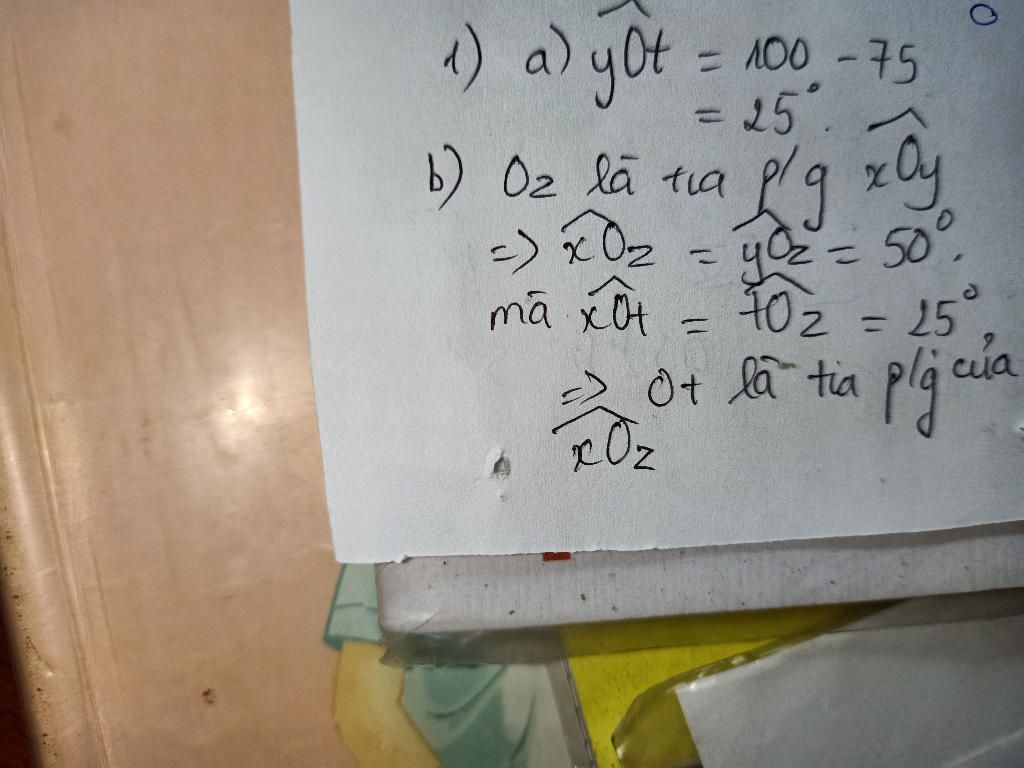 1) a) yOt = 100 - 75
= 25°.
b) Oz là tia p/g xOy
=> xOz = yOz = 50°.
mà xOt = tOz = 25°,
=> Ot là tia p/g của
xOz